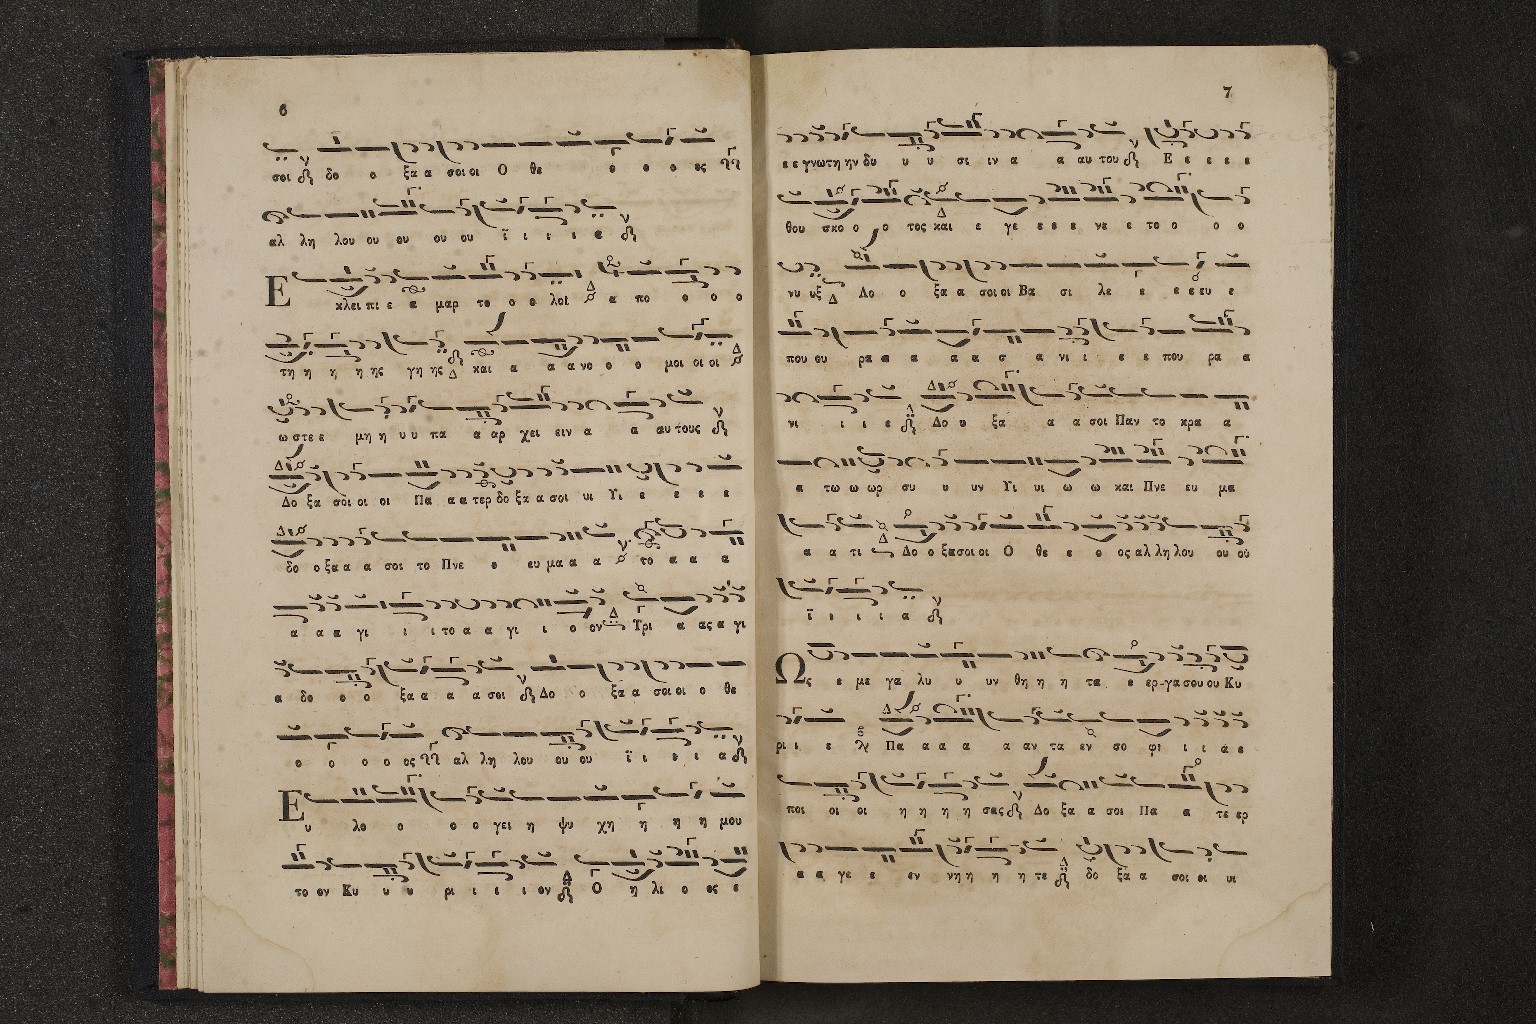 6
σοι δο ο ξα α σοι οι Ο θε ο ο ο ος
αλ λη λου ου ου ου ου ϊ ι ι ι α
Ε κλει πι ε α μαρ το ο ο λοι α πο ο ο ο
τη η η η ης γη ης και α α α νο ο ο μοι οι οι
ω στε ε μη η υ υ πα α αρ χει ειν α α αυ τους
Δο ξα σοι οι οι Πα α α τερ δο ξα α σοι υι Υι ε ε ε ε
δο ο ξα α α σοι το Πνε ε ευ μα α α το α α α
α α α γι ι ι το α α γι ι ο ον Τρι α ας α γι
α δο ο ο ξα α α α σοι Δο ο ξα α σοι οι ο θε
ο ο ο ο ος αλ λη λου ου ου ϊ ι ι ι α
Ε υ λο ο ο ο γει η ψυ χη η η η μου
το ον Κυ υ υ ρι ι ε ι ον Ο η λι ο ος ε
7
ε ε γνω τη ην δυ υ υ σι ιν α α αυ του Ε ε ε ε ε
θου σκο ο ο τος και ε γε ε ε ε νε ε το ο ο ο
νυ υξ Δο ο ξα α σοι οι Βα σι λε ε ε ε ευ ε
που ου ρα α α α α α νι ι ε ε που ρα α
νι ι ι ε Δο υ ξα α α σοι Παν το κρα α
α τω ω ωρ συ υ υν Υι υι ω ω και Πνε ευ μα
α α τι Δο ο ξα σοι οι Ο θε ε ο ος αλ λη λου ου ού
ϊ ι ι ι α
Ως ε με γα λυ υ υν θη η η τα ε ερ-γα σου ου Κυ
ρι ι ε Πα α α α α αν τα εν σο φι ι ι ά ε
ποι οι οι η η η η σας Δο ξα α σοι Πα α τε ερ
α α γε ε εν νη η η η τε δο ξα α σοι οι υι